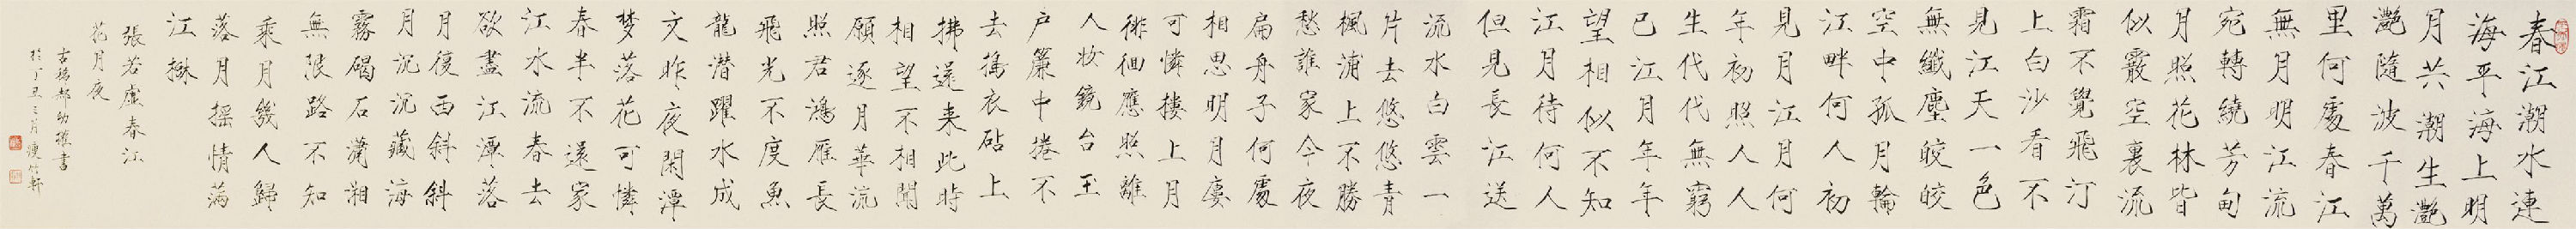 春江潮水連
海平海上明
月共潮生灔
灔隨波千萬
里何處春江
無月明江流
宛轉繞芳甸
月照花林皆
似霰空裏流
霜不覺飛汀
上白沙看不
見江天一色
無纖塵皎皎
空中孤月輪
江畔何人初
見月江月何
年初照人人
生代代無窮
已江月年年
望相似不知
江月待何人
但見長江送
流水白雲一
片去悠悠青
楓浦上不勝
愁誰家今夜
扁舟子何處
相思明月廔
可憐樓上月
徘徊應照離
人妝鏡台玉
户簾中捲不
去搗衣砧上
拂還来此時
相望不相聞
願逐月華流
照君鴻雁長
飛光不度魚
龍潜躍水成
文昨夜閑潭
梦落花可憐
春半不還家
江水流春去
欲盡江潭落
月復西斜斜
月沉沉藏海
霧碣石瀟湘
無限路不知
乘月幾人歸
落月摇情滿
江樹
張若虛春江
花月夜
古橋郝幼權書
於丁丑三月瘦竹軒